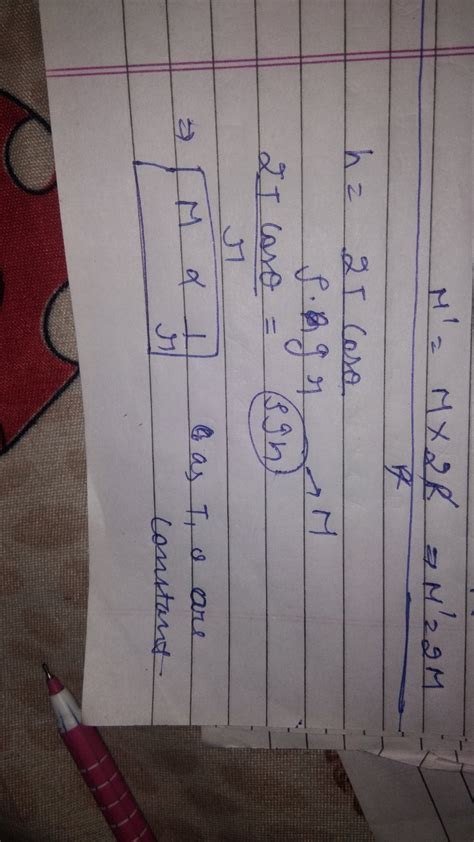 M' = M × 2R/R ⇒ M' = 2M
h = 2T cosθ / ρ.g r
2T cosθ / r = (ρgh) → M
⇒ M α 1/r as T, θ are
constant